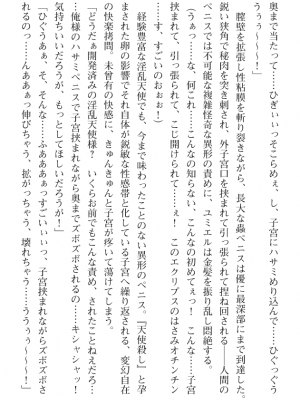 奥まで当たって……ひぎぃぃっそこらめぇ、し、子宮にハサミめり込んで……ひぐっぐう
うぅぅ〜〜〜！」
　膣壁を拡張し性粘膜を斬り裂きながら、長大な蟲ペニスは優に最深部にまで到達した。
鋭い狭角で秘肉を突き刺され、外子宮口を挟まれて引っ張られて捏ね回される――人間の
ペニスでは不可能な複雑怪奇な異形の責めに、ユミエルは金髪を振り乱し悶絶する。
「うぁぁっ　な、何これ……こんなの知らない、こんなの初めてぇっ！　こんな……子宮
挟まれて、引っ張られて、こじ開けられて……ぇ！　このエクリプスのはさみオチンチン
す、すごいのぉぉ！」
　経験豊富な淫乱天使でも、今まで味わったことのない異形のペニス。『天使殺し』と孕
まされた卵の影響でそれ自体が鋭敏な性感帯と化している子宮へ繰り返される、変幻自在
の快楽拷問。未曾有の快感に、きゅんきゅんと子宮が疼いて蕩けてしまう。
「どうだぁ開発済みの淫乱天使様？　いくらお前でもこんな責め、されたことねえだろ…
…俺様のハサミペニスで子宮挟まれながら奥までズボズボされるの……キシャシャッ！
気持ちいいだろうが、もっとしてほしいだろうが！」
「ひぐうあぁ、そ、そんな……ふあああぁっすごいぃぃっ、子宮挟まれながらズボズボさ
れるのっ……んああぁっ伸びちゃう、拡がっちゃう、壊れちゃう……うううぅ〜〜〜！」